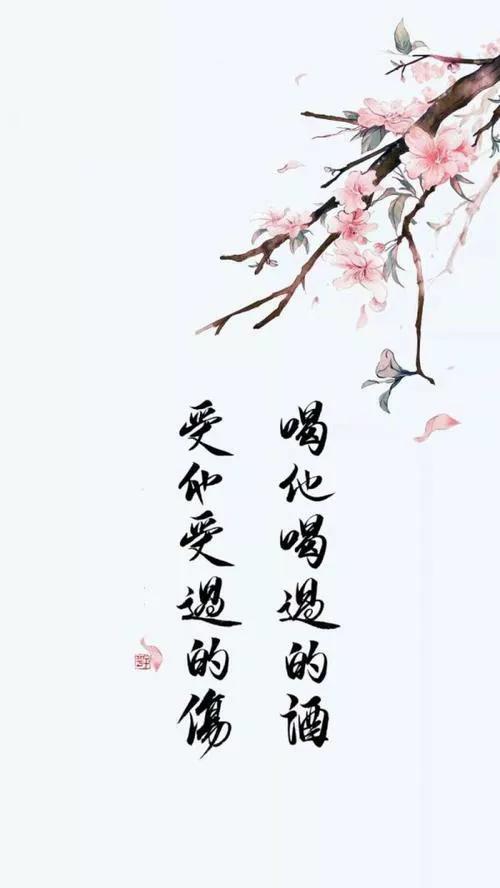 喝他喝過的酒
受他受過的傷